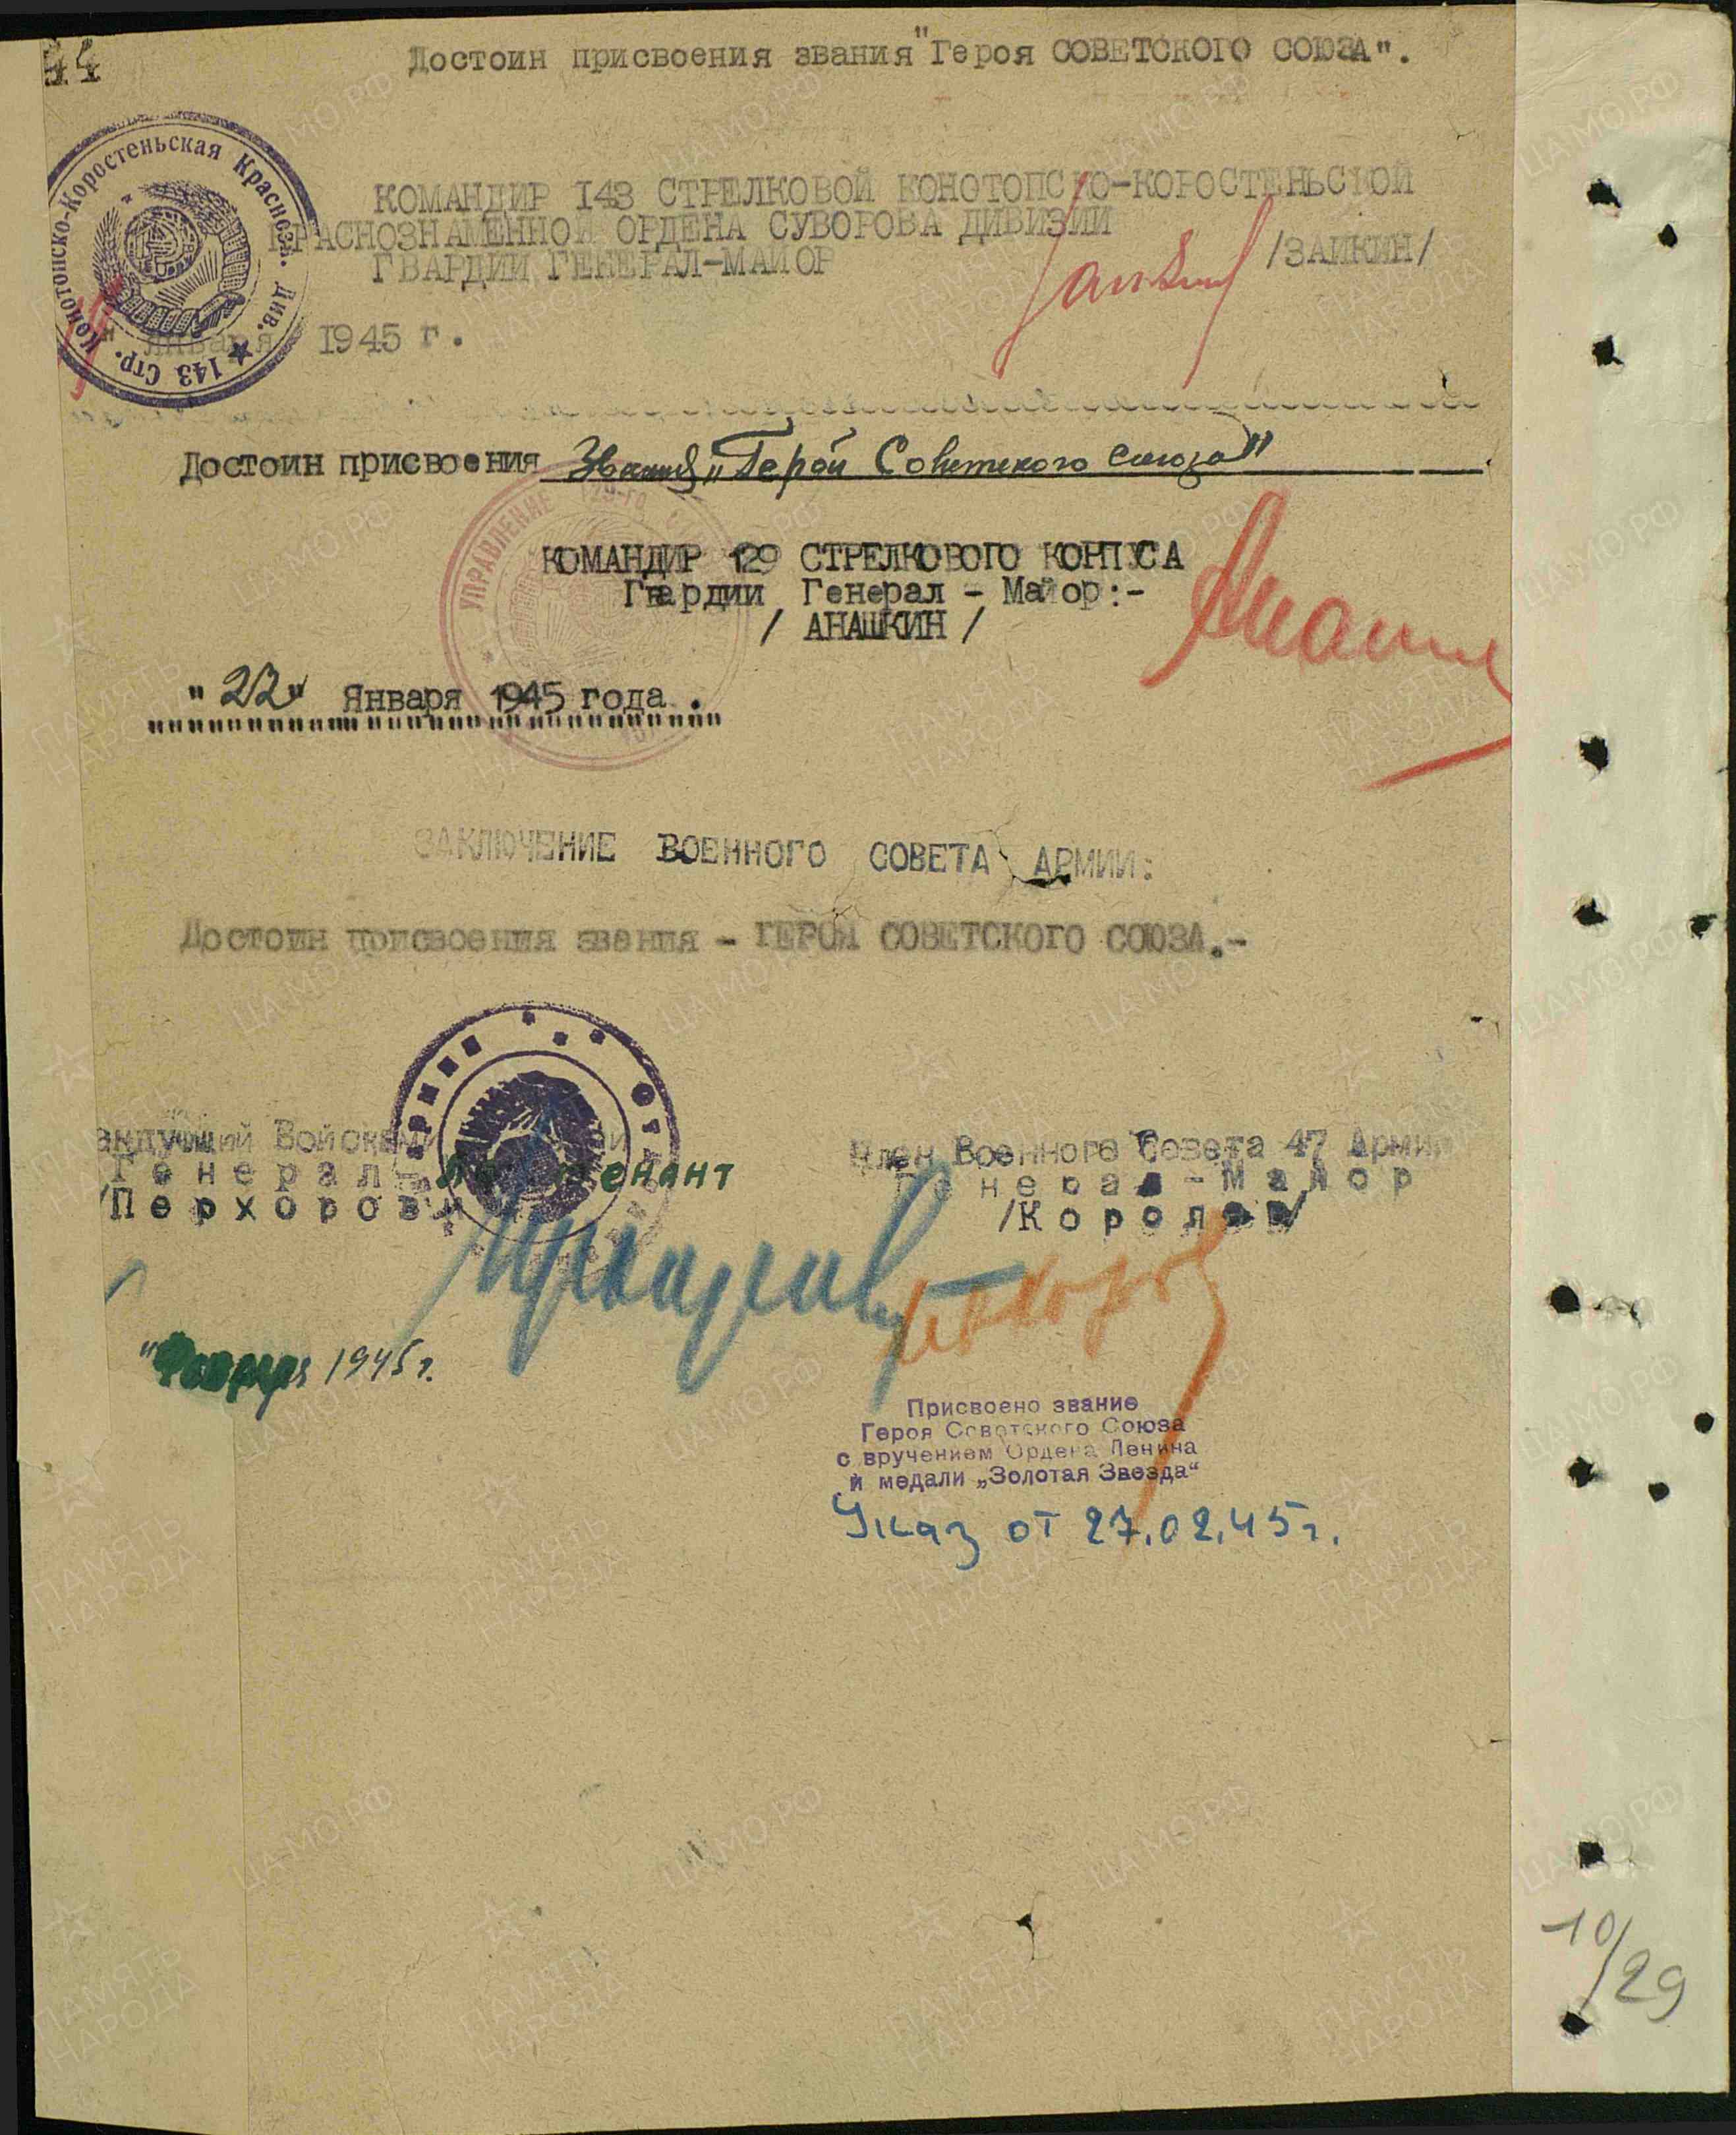 44
Достоин присвоения звания "Героя СОВЕТСКОГО СОЮЗА".
143 Стр. Конотопско-Коростеньская Краснозн. Див.
КОМАНДИР 143 СТРЕЛКОВОЙ КОНОТОПСКО-КОРОСТЕНЬСКОЙ
КРАСНОЗНАМЕННОЙ ОРДЕНА СУВОРОВА ДИВИЗИИ
ГВАРДИИ ГЕНЕРАЛ-МАЙОР
/ЗАИКИН/
" января 1945 г.
Достоин присвоения звания "Герой Советского Союза"
УПРАВЛЕНИЕ 129-го
КОМАНДИР 129 СТРЕЛКОВОГО КОРПУСА
Гвардии Генерал - Майор:-
/ АНАШКИН /
"22" Января 1945 года.
ЗАКЛЮЧЕНИЕ ВОЕННОГО СОВЕТА АРМИИ:
Достоин присвоения звания - ГЕРОЯ СОВЕТСКОГО СОЮЗА.-
андующий Войсками
Генерал-лейтенант
/Перхорович
Член Военного Совета 47 Армии
Генерал-Майор
/Королев/
" Февраля 1945 г.
Присвоено звание
Героя Советского Союза
с вручением Ордена Ленина
и медали „Золотая Звезда“
Указ от 27.02.45г.
10/29
ЦАМО.РФ
ПАМЯТЬ
НАРОДА